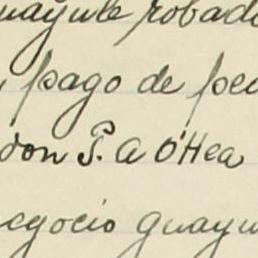 guayule robado
, pago de peo
don P. A O'Hea
negocio guayu